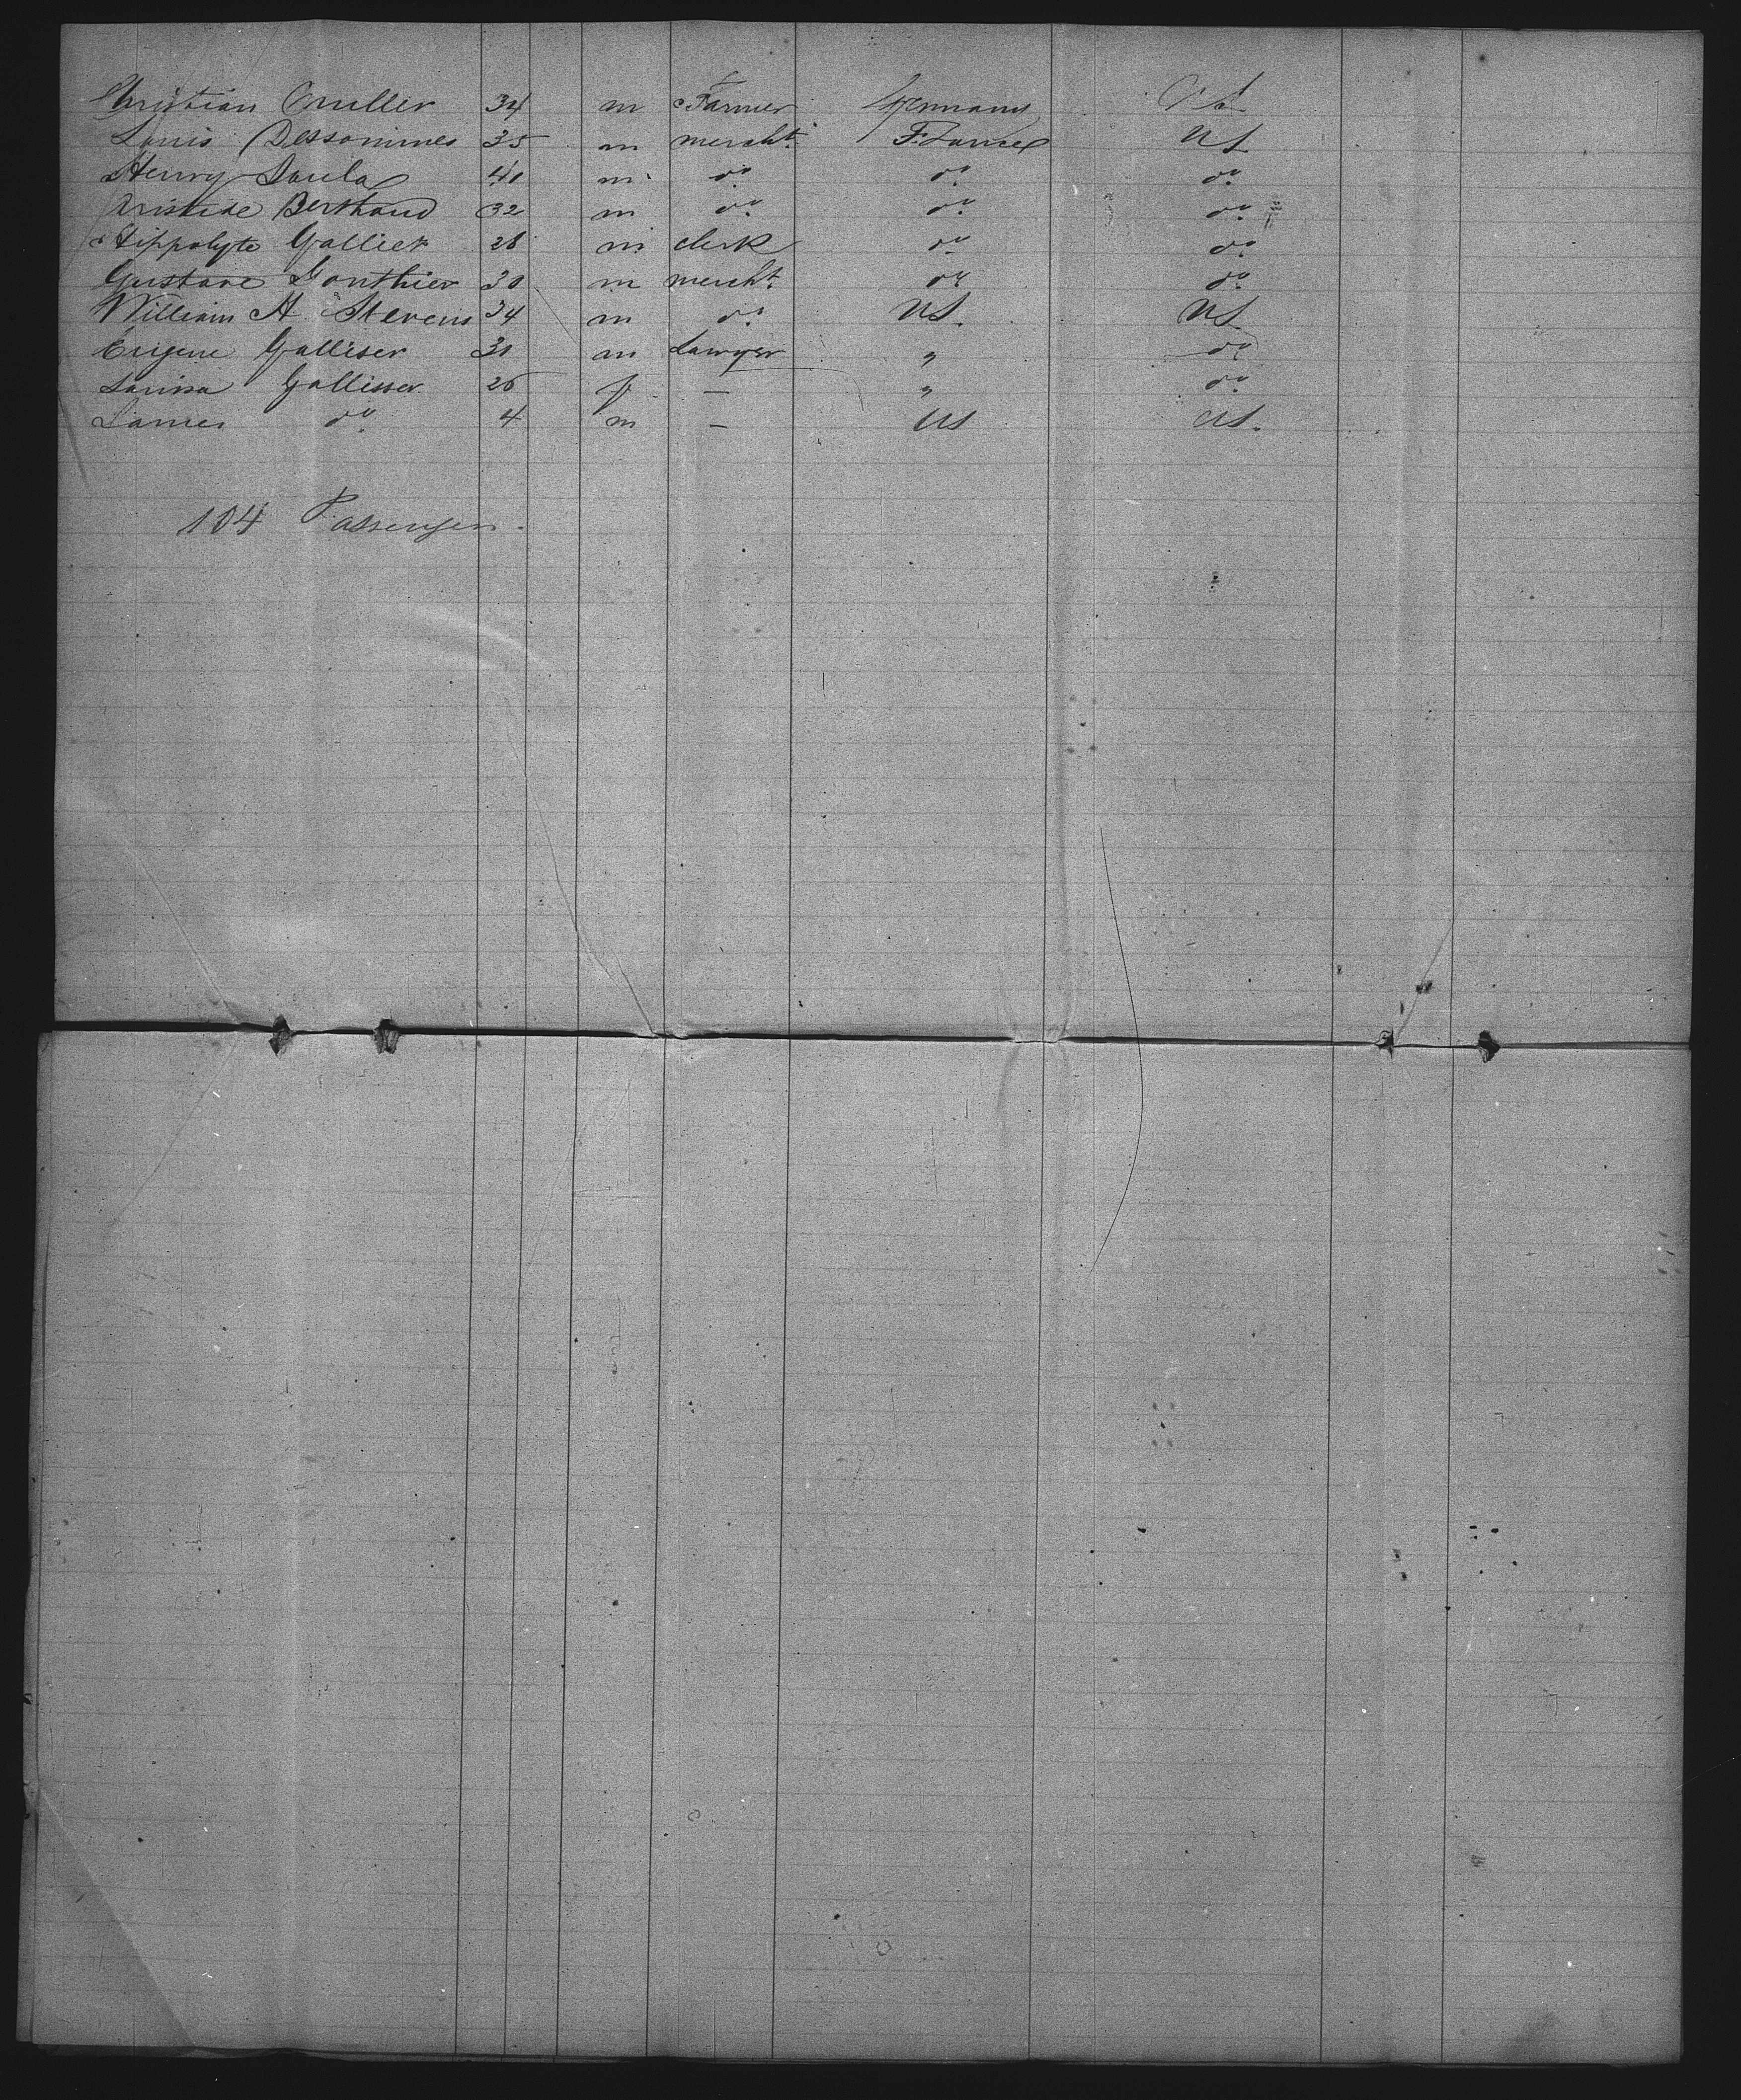 Christian Muller 34 m Farmer Germany U S
Louis Dessommes 35 m mercht. France U S
Henry Laula 40 m do. do. do.
Aristide Berthaud 32 m do. do. do.
Hippolyte Gallier 28 m clerk do. do.
Gustave Gonthier 30 m mercht. do. do.
William H Stevens 34 m do. US. US
Eugene Galliser 30 m Lawyer " do.
Louisa Gallisser 26 f — " do.
James do. 4 m — US US.
104 Passengers.